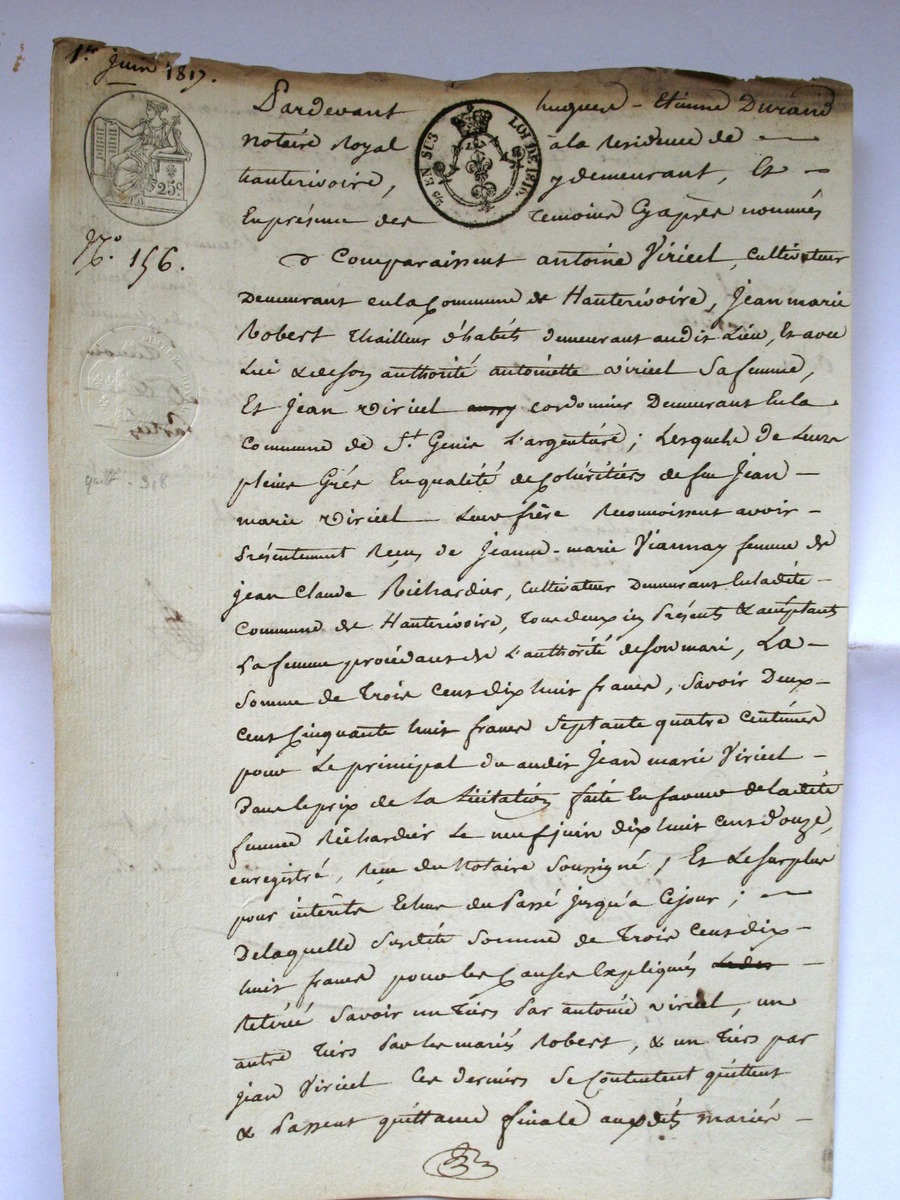 1er juin 1817.
Pardevant hugues-Etienne Durand
notaire Royal à la Residence de
hauterivoire, y demeurant, Et
En présence des Temoins Cyaprès nommés
25c
EN SUS LOI DE 1816.
No. 156.
Comparaissent antoine Viricel, Cultivateur
Demeurant en la Commune de Hauterivoire, Jean marie
Robert thailleur d'habits demeurant audit Lieu, Et avec
Lui & de son authorité antoinette viricel Sa femme,
Et Jean viricel aussy cordonnier Demeurant En la
Commune de St. Genis L'argentiere; Lesquels De Leurs
pleins Grés En qualité de Cohéritiers de feu Jean
marie viricel Leur frère Reconnoissent avoir
Présentement Reçu de Jeanne-marie Viannay femme de
jean Claude Richardier, Cultivateur Demeurant En ladite
Commune de Hauterivoire, Tous deux icy Présents & acceptants
La femme procédant de L'authorité de son mari, La
Somme de Trois Cent dix huit francs, Savoir Deux
Cent Cinquante huit francs Septante quatre Centimes
pour Le principal du audit Jean marie Viricel
Dans le prix de la Licitation faite En faveur de ladite
femme Richardier Le neuf juin dix huit cent douze,
enregistré, Reçu du Notaire Soussigné; Et Le Surplus
pour interêts Echus du Passé jusqu'à Ce jour;
De laquelle Susdite Somme de Trois Cent dix
huit francs pour les Causes Expliqués
Retirée Savoir un Tiers Par antoine viricel, un
autre Tiers Par les mariés Robert, & un Tiers par
jean Viricel Ces derniers Se Contentent quittent
& Passent quittance finale auxdits mariés